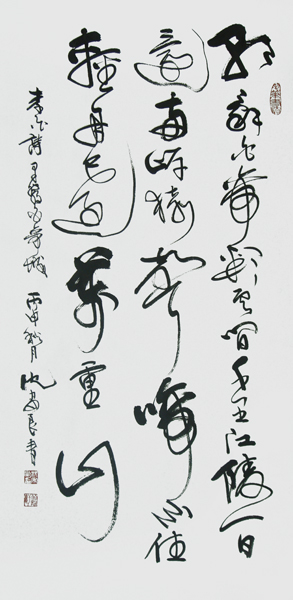 朝辭白帝彩雲間千里江陵一日
還兩岸猿聲啼不住
輕舟已過萬重山
李白詩早發白帝城 丙申秋月